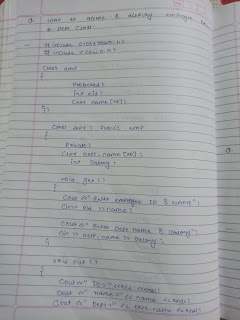 Q. WAP to accept & display employee
& Dept. Class.
# include <iostream.h>
# include <conio.h>
Class emp
{
Protected:
int eid;
Char name[10];
};
Class dept: Public emp
{
Private:
Char Dept_name[10];
int Salary;
void get()
{
Cout <<" Enter employee ID & name";
Cin>> eid >>name;
Cout <<" Enter Dept name & salary";
Cin >> Dept_name >> salary;
}
void put()
{
Cout <<" ID=" <<eid <<endl;
Cout <<" Name=" << name <<endl;
Cout <<" Dept=" << Dept_name <<endl;